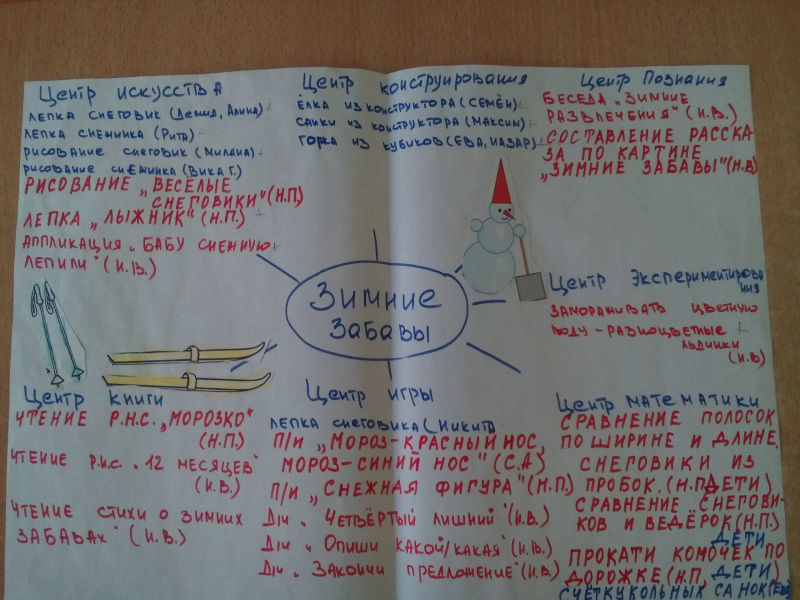 Центр искусства
лепка снеговик (Демид, Алина)
лепка снежинка (Рита)
рисование снеговик (Милана)
рисование снежинка (Вика Г.)
Рисование „Весёлые
снеговики" (Н.П)
Лепка „Лыжник" (Н.П.)
Аппликация „Бабу снежную
лепили" (И.В.)
Центр конструирования
ёлка из конструктора (Семён)
санки из конструктора (Максим)
горка из кубиков (Ева, Назар)
Центр Познания
Беседа „Зимние
развлечения" (И.В.)
Составление расска-
за по картине
„Зимние забавы" (Н.В)
Зимние
забавы
Центр Экспериментирова
ния
Замораживать цветную
воду - разноцветные
льдинки
(И.В)
Центр книги
Чтение Р.Н.С. „Морозко"
(Н.П.)
Чтение Р.н.с. „12 месяцев"
(И.В.)
Чтение стихи о зимних
забавах" (И.В.)
Центр игры
Лепка снеговика (Никита
П/и „Мороз-красный нос,
Мороз-синий нос" (С.А)
П/и „Снежная фигура" (Н.П.)
Д/и „Четвёртый лишний" (И.В.)
Д/и „Опиши какой/какая" (И.В.)
Д/и „Закончи предложение" (И.В.)
Центр математики
Сравнение полосок
по ширине и длине.
Снеговики из
пробок. (Н.П ДЕТИ)
Сравнение снегови-
ков и ведёрок (Н.П.)
ДЕТИ
Прокати комочек по
дорожке (Н.П, ДЕТИ)
Счёт кукольных санок (Ева)